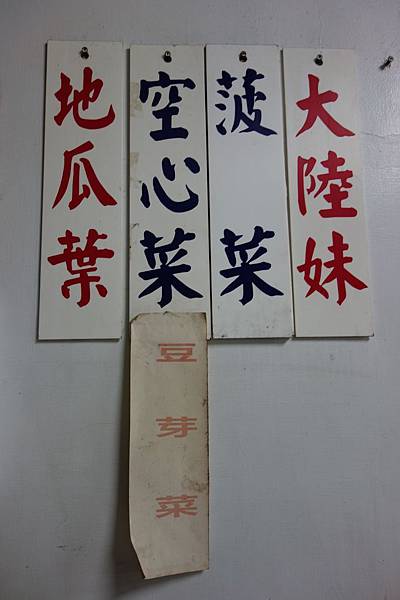 大陸妹
菠菜
空心菜
地瓜葉
豆芽菜